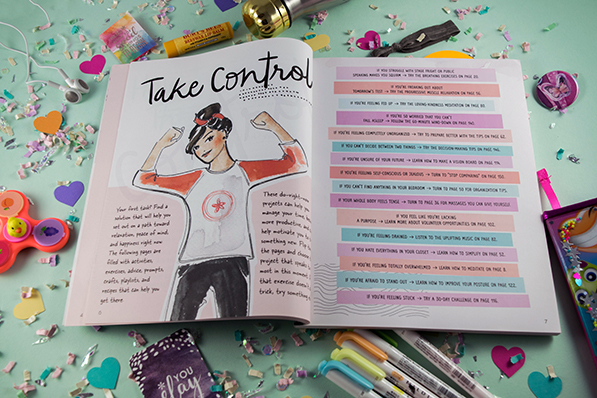 Take Control
Your first task? Find a
solution that will help you
set out on a path toward
relaxation, peace of mind,
and happiness right now.
The following pages are
filled with activities,
exercises, advice, prompts,
crafts, playlists, and
recipes that can help you
get there.
These do-right-now
projects can help you
manage your time, be
more productive, and
help motivate you
something new. Flip
the pages and choose
project that speaks
most in this moment
that exercise doesn't
trick, try something
6
IF YOU STRUGGLE WITH STAGE FRIGHT OR PUBLIC
SPEAKING MAKES YOU QUEASY → TRY THE BREATHING EXERCISES ON PAGE
IF YOU'RE FREAKING OUT ABOUT
TOMORROW'S TEST → TRY THE PROGRESSIVE MUSCLE RELAXATION ON PAGE
IF YOU'RE FEELING FED UP → TRY THE LOVING-KINDNESS MEDITATION ON PAGE
IF YOU'RE SO WORRIED THAT YOU CAN'T
FALL ASLEEP → FOLLOW THE 60-MINUTE WIND-DOWN ON PAGE
IF YOU'RE FEELING COMPLETELY UNORGANIZED → TRY TO PREPARE BETTER WITH THE TIPS ON PAGE
IF YOU CAN'T DECIDE BETWEEN TWO THINGS → TRY THE DECISION-MAKING TIPS ON PAGE
IF YOU'RE UNSURE OF YOUR FUTURE → LEARN HOW TO MAKE A VISION BOARD ON PAGE
IF YOU'RE FEELING SELF-CONSCIOUS OR JEALOUS → TURN TO "STOP COMPARING" ON PAGE
IF YOU CAN'T FIND ANYTHING IN YOUR BEDROOM → TURN TO PAGE FOR ORGANIZATION TIPS.
IF YOUR WHOLE BODY FEELS TENSE → TURN TO PAGE FOR MASSAGES YOU CAN GIVE YOURSELF
IF YOU FEEL LIKE YOU'RE LACKING
A PURPOSE → LEARN MORE ABOUT VOLUNTEER OPPORTUNITIES ON PAGE
IF YOU'RE FEELING DRAINED → LISTEN TO THE UPLIFTING MUSIC ON PAGE
IF YOU HATE EVERYTHING IN YOUR CLOSET → LEARN HOW TO SIMPLIFY ON PAGE
IF YOU'RE FEELING TOTALLY OVERWHELMED → LEARN HOW TO MEDITATE ON PAGE
IF YOU'RE AFRAID TO STAND OUT → LEARN HOW TO IMPROVE YOUR POSTURE ON PAGE
IF YOU'RE FEELING STUCK → TRY A 30-DAY CHALLENGE ON PAGE
7
YOU
slay